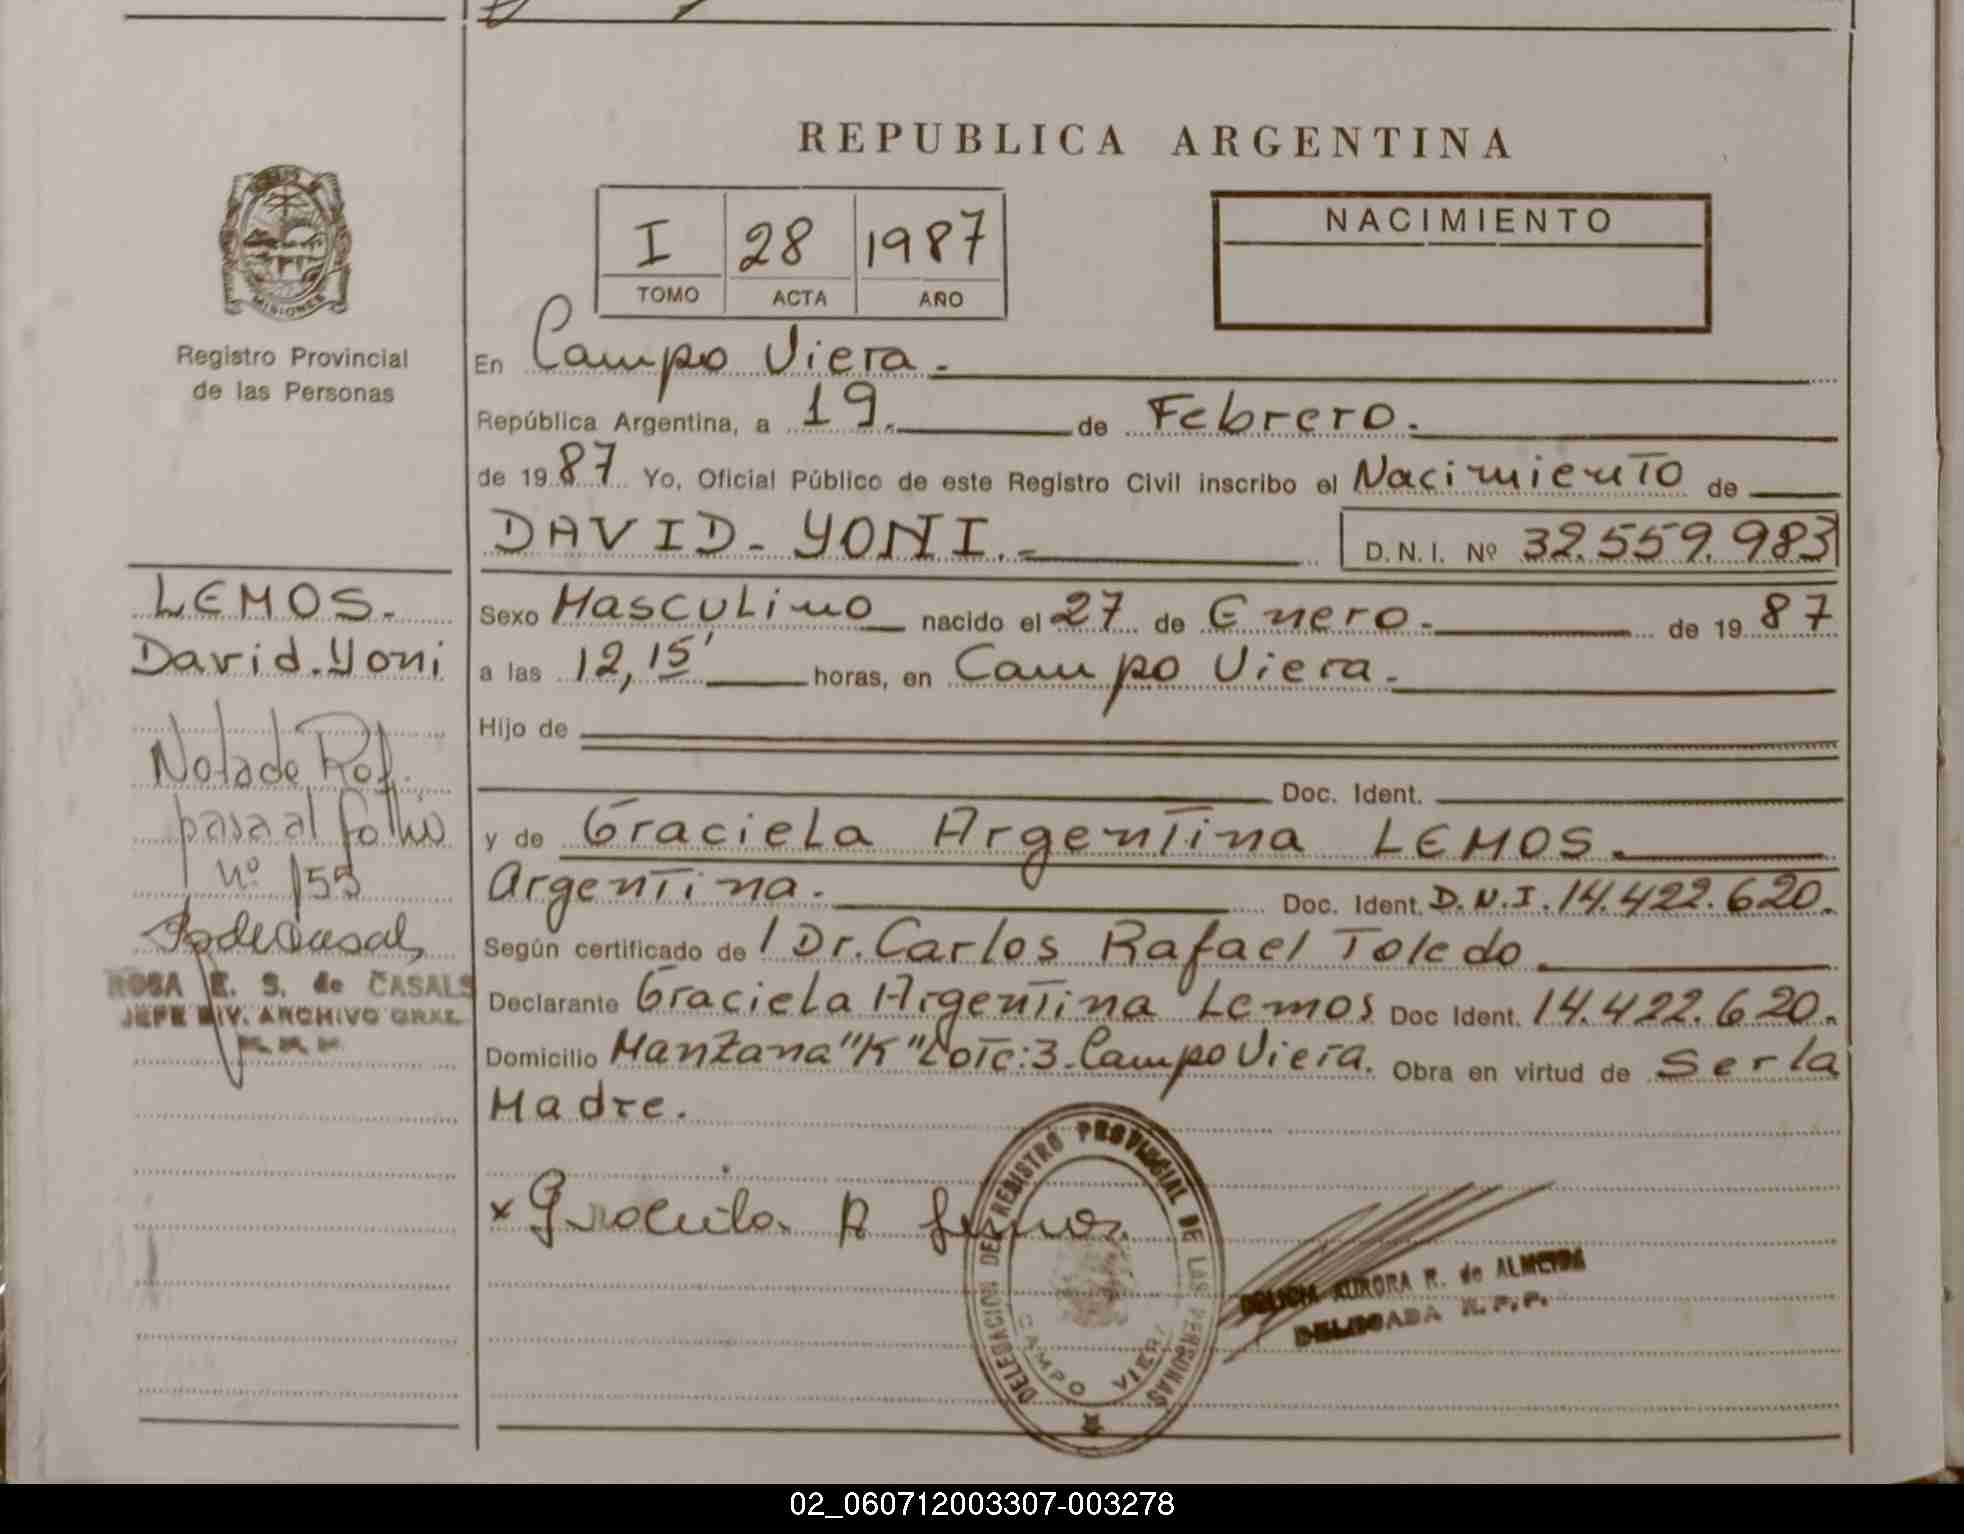 REPUBLICA ARGENTINA
I 28 1987
TOMO ACTA AÑO
NACIMIENTO
MISIONES
Registro Provincial
de las Personas
En Campo Viera.
República Argentina, a 19. de Febrero.
de 1987 Yo, Oficial Público de este Registro Civil inscribo el Nacimiento de
DAVID-YONI.- D.N.I. Nº 32.559.983
LEMOS.
David.Yoni
Nota de Ref.
pasa al folio
nº 155
ROSA E. S. de CASALS
JEFE DIV. ARCHIVO GRAL.
Sexo Masculino nacido el 27 de Enero. de 1987
a las 12,15' horas, en Campo Viera.
Hijo de
Doc. Ident.
y de Graciela Argentina LEMOS.
Argentina. Doc. Ident. D.N.I. 14.422.620.
Según certificado de Dr. Carlos Rafael Toledo
Declarante Graciela Argentina Lemos Doc Ident. 14.422.620.
Domicilio Manzana "K" Lote:3-Campo Viera. Obra en virtud de Ser la
Madre.
x Graciela A Lemos
DELEGACION DEL REGISTRO PROVINCIAL DE LAS PERSONAS
CAMPO VIERA
AURORA R. de ALMEIDA
DELEGADA R.P.P.
02_060712003307-003278